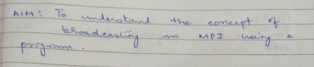 AIM: To understand the concept of
broadcasting in MPI using a
program.